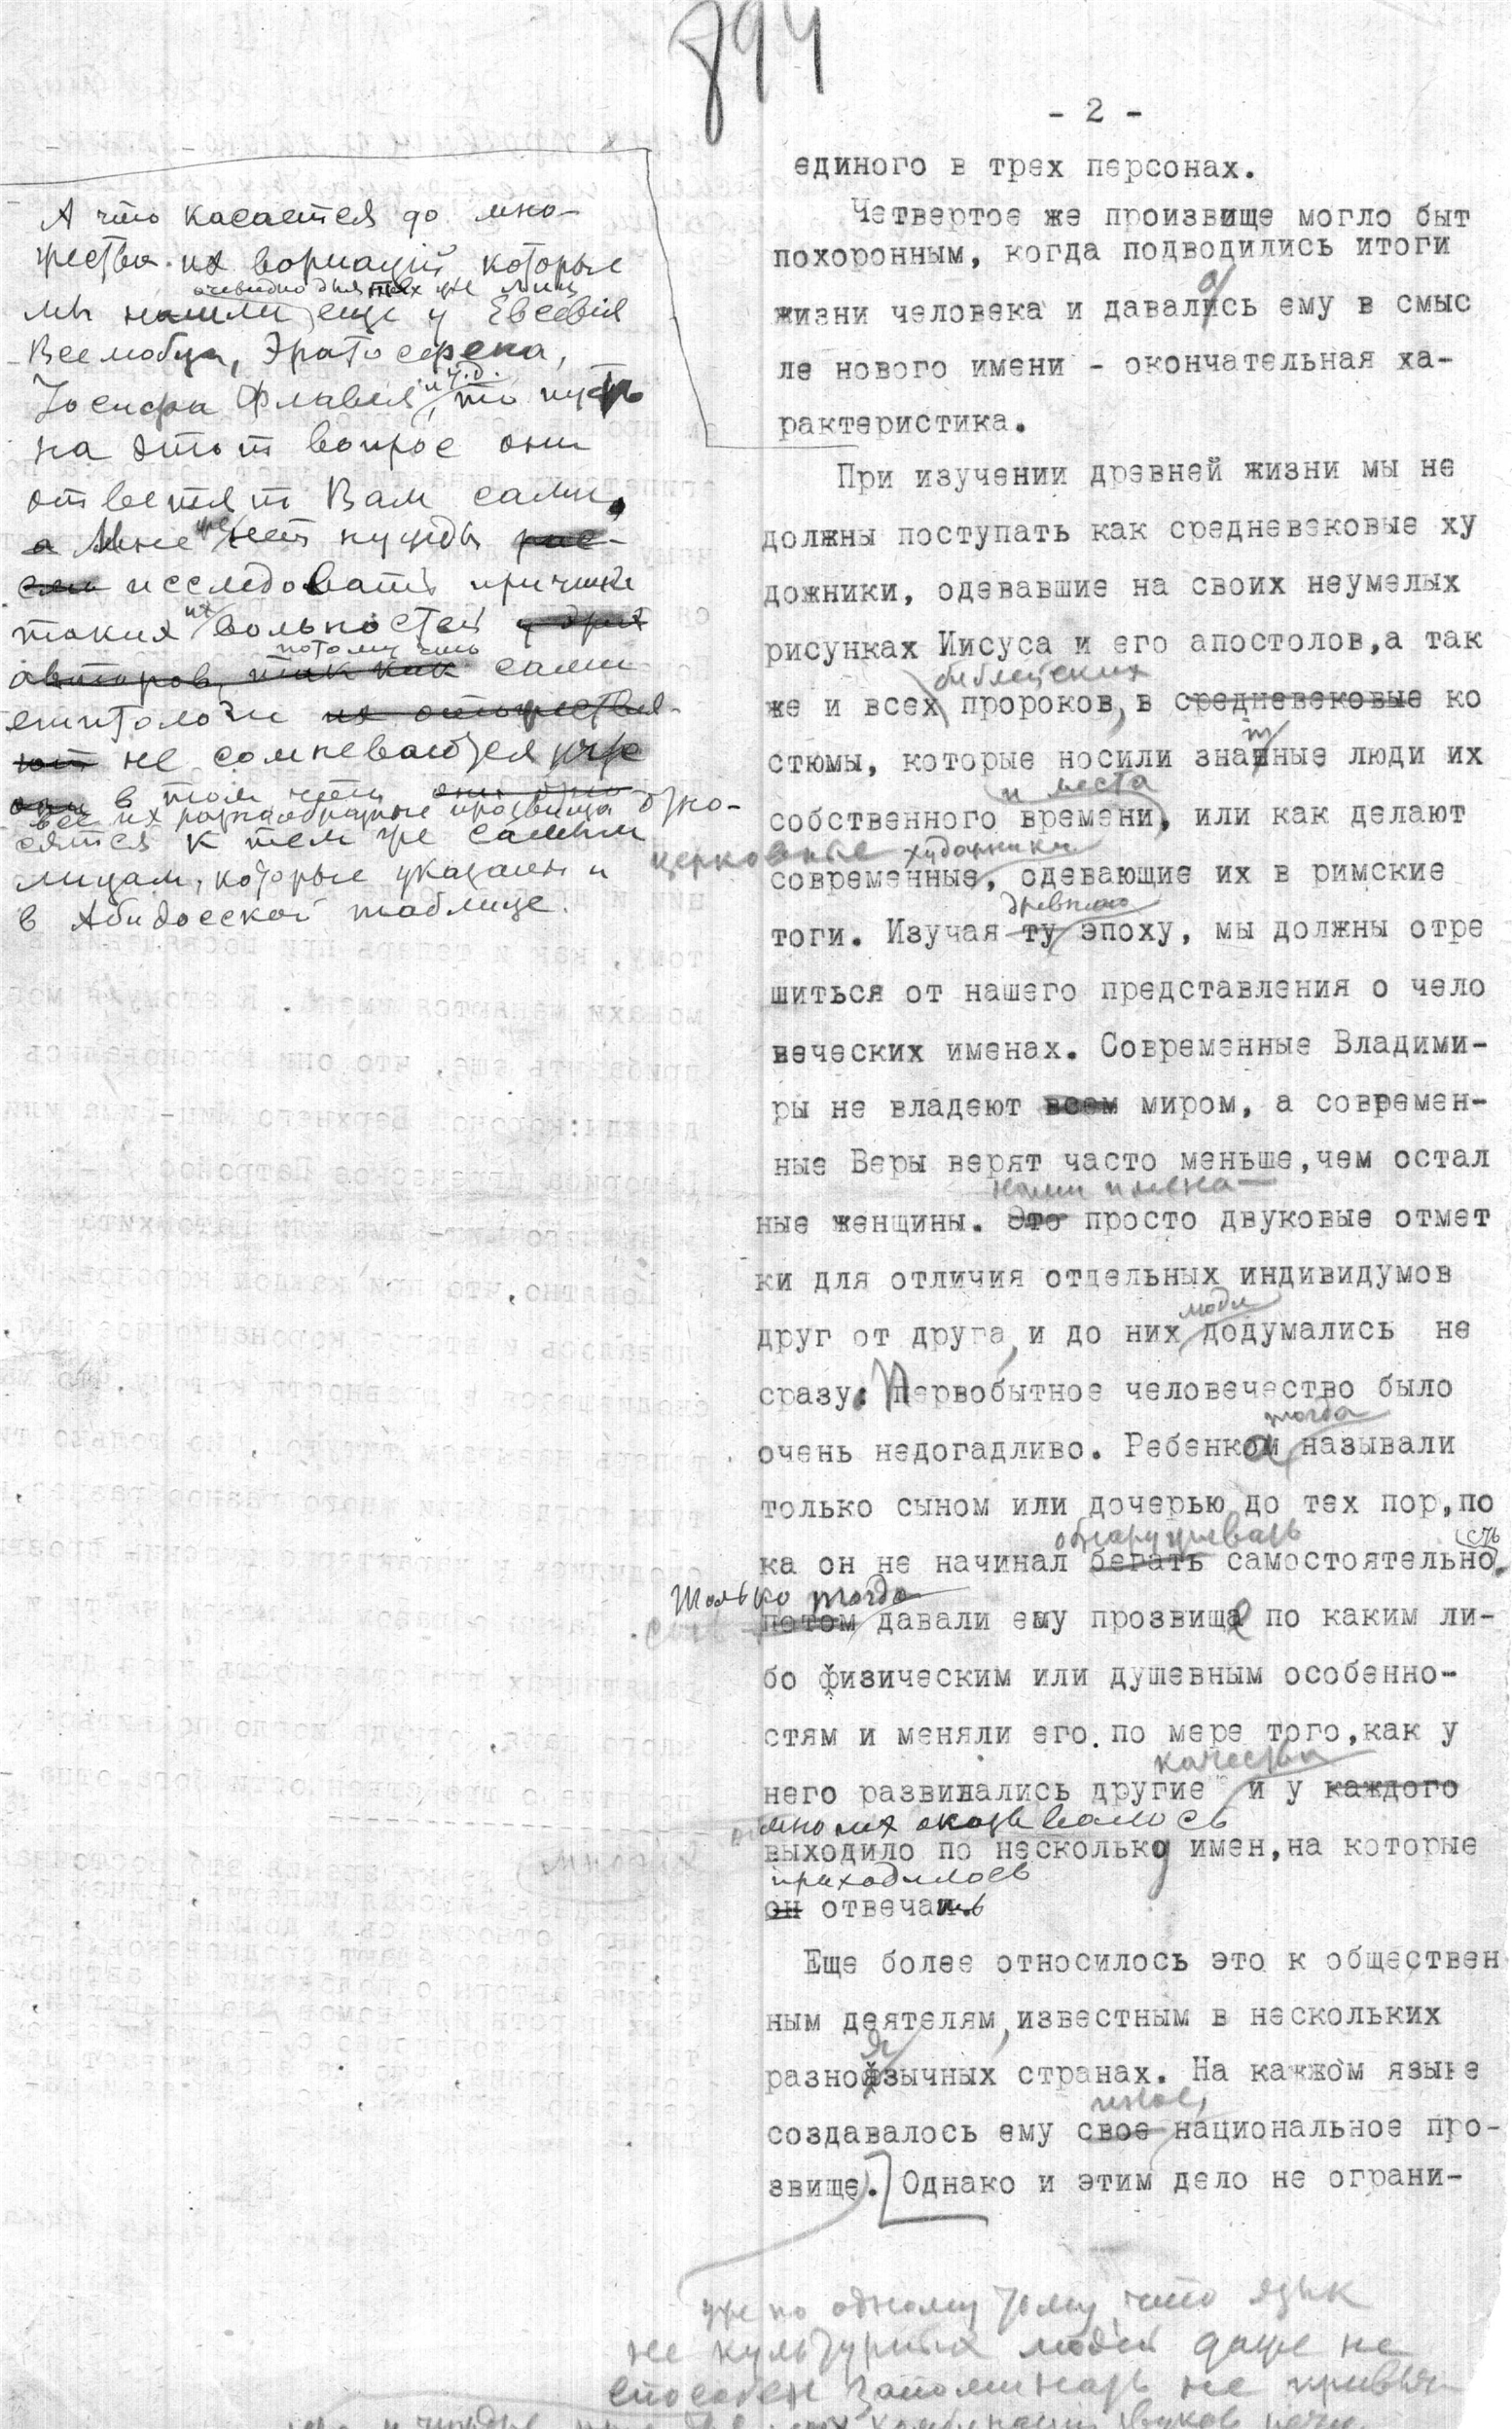 794
- 2 -
единого в трех персонах.
Четвертое же произвище могло быт
похоронным, когда подводились итоги
а
жизни человека и давались ему в смыс
ле нового имени - окончательная ха-
рактеристика.
А что касается до мно-
жества их вориаций, которые
очевидно для тех же лиц
мы нашли еще у Евсевия
Всемобца, Эратосфена,
и т.д.
Иосифа Флавия, то пусть
на этот вопрос они
ответят Вам сами,
же
а Мне нет нужды рас-
исследовать причины
их
таких вольностей у др
потому что
авторов, так как сами
египтологи их отожествля-
ют не сомневаются уже
они в том что они
все их разнообразные прозвища отно-
сятся к тем же самым
лицам, которые указаны и
в Абидосской таблице.
При изучении древней жизни мы не
должны поступать как средневековые ху
дожники, одевавшие на своих неумелых
рисунках Иисуса и его апостолов,а так
библейских
же и всех пророков, в средневековые ко
т
стюмы, которые носили знатные люди их
и места
собственного времени, или как делают
церковные художники
современные, одевающие их в римские
древнюю
тоги. Изучая ту эпоху, мы должны отре
шиться от нашего представления о чело
веческих именах. Современные Владими-
ры не владеют всем миром, а современ-
ные Веры верят часто меньше,чем остал
Наши имена
ные женщины. Это просто двуковые отмет
ки для отличия отдельных индивидумов
люди
друг от друга, и до них додумались не
сразу: Первобытное человечество было
тогда
очень недогадливо. Ребенка называли
только сыном или дочерью до тех пор,по
обнаруживать сть
ка он не начинал бегать самостоятельно.
Только тогда
потом давали ему прозвище по каким ли-
бо физическим или душевным особенно-
стям и меняли его по мере того,как у
качества
него развивались другие и у каждого
многих оказывалось
выходило по нескольку имен,на которые
приходилось
он отвечать
Еще более относилось это к обществен
ным деятелям, известным в нескольких
я
разноязычных странах. На кажжом языке
иное,
создавалось ему свое национальное про-
звище. Однако и этим дело не ограни-
уже по одному тому, что язык
не культурных людей даже не
способен запоминать не привыч
комбинации звуков речи